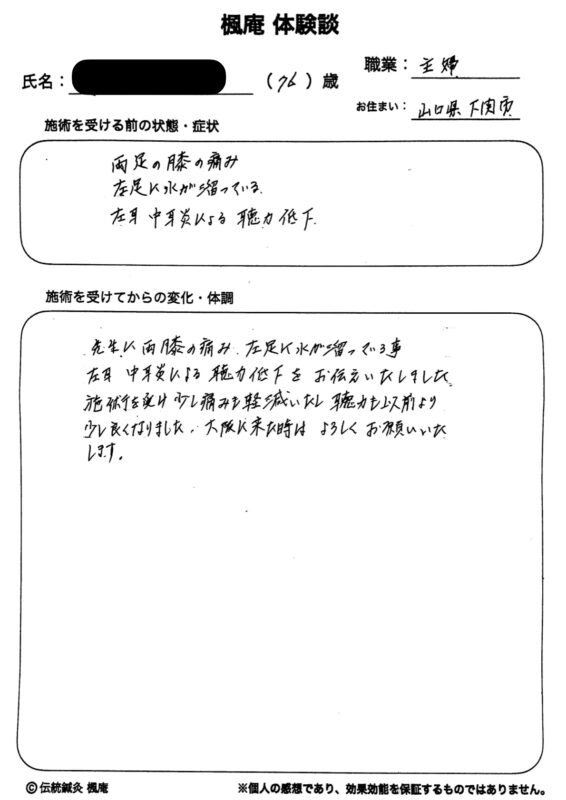 楓庵 体験談
職業：主婦
氏名：（76）歳
お住まい：山口県下関市
施術を受ける前の状態・症状
両足の膝の痛み
左足に水が溜っている.
左耳 中耳炎による 聴力低下.
施術を受けてからの変化・体調
先生に両膝の痛み、左足に水が溜っている事
左耳 中耳炎による 聴力低下を お伝えいたしました。
施術を受け 少し痛みも軽減いたし 聴力も以前より
少し良くなりました. 大阪に来た時は よろしく お願いいた
します。
© 伝統鍼灸 楓庵
※個人の感想であり、効果効能を保証するものではありません。